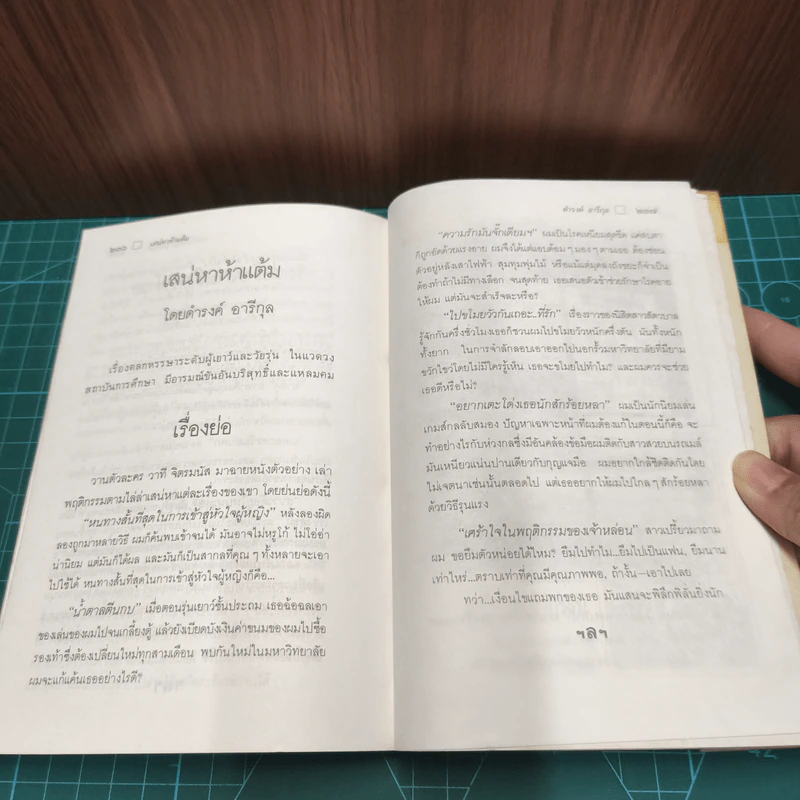 ๒๖๖ เสน่หาห้าแต้ม
เสน่หาห้าแต้ม
โดยดำรงค์ อารีกุล
เรื่องตลกหรรษาระดับผู้เยาว์และวัยรุ่น ในแวดวง
สถาบันการศึกษา มีอารมณ์ขันอันบริสุทธิ์และแหลมคม
เรื่องย่อ
วานตัวละคร วาที จิตรมนัส มาฉายหนังตัวอย่าง เล่า
พฤติกรรมตามไล่ล่าเสน่หาแต่ละเรื่องของเขา โดยย่นย่อดังนี้
“หนทางสั้นที่สุดในการเข้าสู่หัวใจผู้หญิง” หลังลองผิด
ลองถูกมาหลายวิธี ผมก็ค้นพบเข้าจนได้ มันอาจไม่หรูโก้ ไม่โอ่อ่า
น่านิยม แต่มันก็ได้ผล และมันก็เป็นสากลที่คุณ ๆ ทั้งหลายจะเอา
ไปใช้ได้ หนทางสั้นที่สุดในการเข้าสู่หัวใจผู้หญิงก็คือ...
“น้ำตาลตีนกบ” เมื่อตอนรุ่นเยาว์ชั้นประถม เธอฉ้อฉลเอา
ของเล่นของผมไปจนเกลี้ยงตู้ แล้วยังเบียดบังเงินค่าขนมของผมไปซื้อ
รองเท้าซึ่งต้องเปลี่ยนใหม่ทุกสามเดือน พบกันใหม่ในมหาวิทยาลัย
ผมจะแก้แค้นเธออย่างไรดี?
ดำรงค์ อารีกุล
“ความรักมันจั๊กเดียมฯ” ผมเป็นโรคเหนียมสุดขีด แค่สบตา
ก็ถูกอัดด้วยแรงอาย ผมจึงได้แต่แอบด้อม ๆ มอง ๆ ตามเธอ ต้องซ่อน
ตัวอยู่หลังเสาไฟฟ้า สุมทุมพุ่มไม้ หรือแม้แต่มุดลงถังขยะก็จำเป็น
ต้องทำถ้าไม่มีทางเลือก จนสุดท้าย เธอเสนอตัวเข้าช่วยรักษาโรคอาย
ให้ผม แต่มันจะสำเร็จละหรือ?
“ไปขโมยวัวกันเถอะ..ที่รัก” เรื่องราวของนิสิตสาวสัตวบาล
รู้จักกันครึ่งชั่วโมงเธอก็ชวนผมไปขโมยวัวหนักครึ่งตัน มันทั้งหนัก
ทั้งยาก ในการจำลักลอบเอาออกไปนอกรั้วมหาวิทยาลัยที่มียาม
ขวักไขว่โดยไม่มีใครรู้เห็น เธอจะขโมยไปทำไม? และผมควรจะช่วย
เธอดีหรือไม่?
“อยากเตะโด่งเธอนักสักร้อยหลา” ผมเป็นนักนิยมเล่น
เกมส์กลลับสมอง ปัญหาเฉพาะหน้าที่ผมต้องแก้ในตอนนี้ก็คือ จะ
ทำอย่างไรกับห่วงกลซึ่งมีอันคล้องข้อมือผมติดกับสาวสวยบนรถเมล์
มันเหนียวแน่นปานเดียวกับกุญแจมือ ผมอยากใกล้ชิดติดกันโดย
ไม่เจตนาเช่นนั้นตลอดไป แต่เธออยากให้ผมไปไกล ๆ สักร้อยหลา
ด้วยวิธีรุนแรง
“เศร้าใจในพฤติกรรมของเจ้าหล่อน” สาวเปรี้ยวมาถาม
ผม ขอยืมตัวหน่อยได้ไหม? ยืมไปทำไม...ยืมไปเป็นแฟน, ยืมนาน
เท่าไหร่...ตราบเท่าที่คุณมีคุณภาพพอ, ถ้างั้น–เอาไปเลย
ทว่า...เงื่อนไขแถมพกของเธอ มันแสนจะพิลึกพิลั่นยิ่งนัก
ฯลฯ